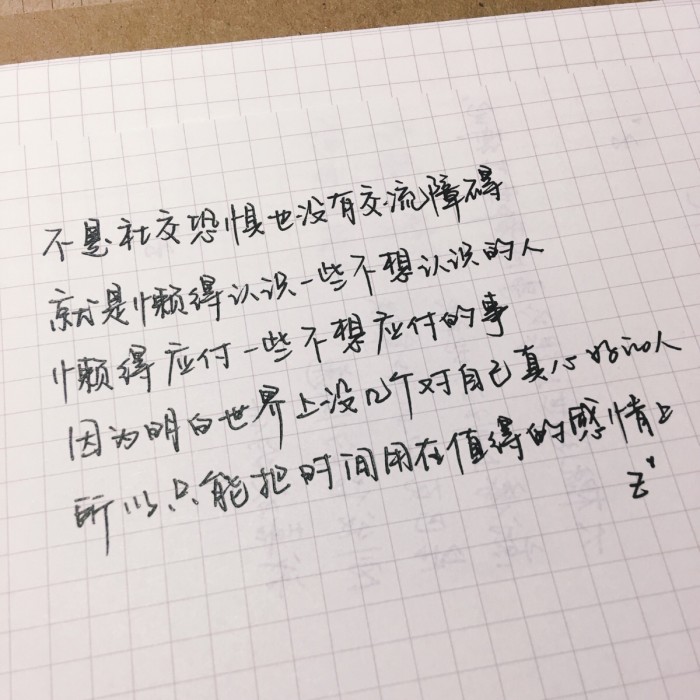 不是社交恐惧也没有交流障碍
就是懒得认识一些不想认识的人
懒得应付一些不想应付的事
因为明白世界上没几个对自己真心好的人
所以只能把时间用在值得的感情上
Z'